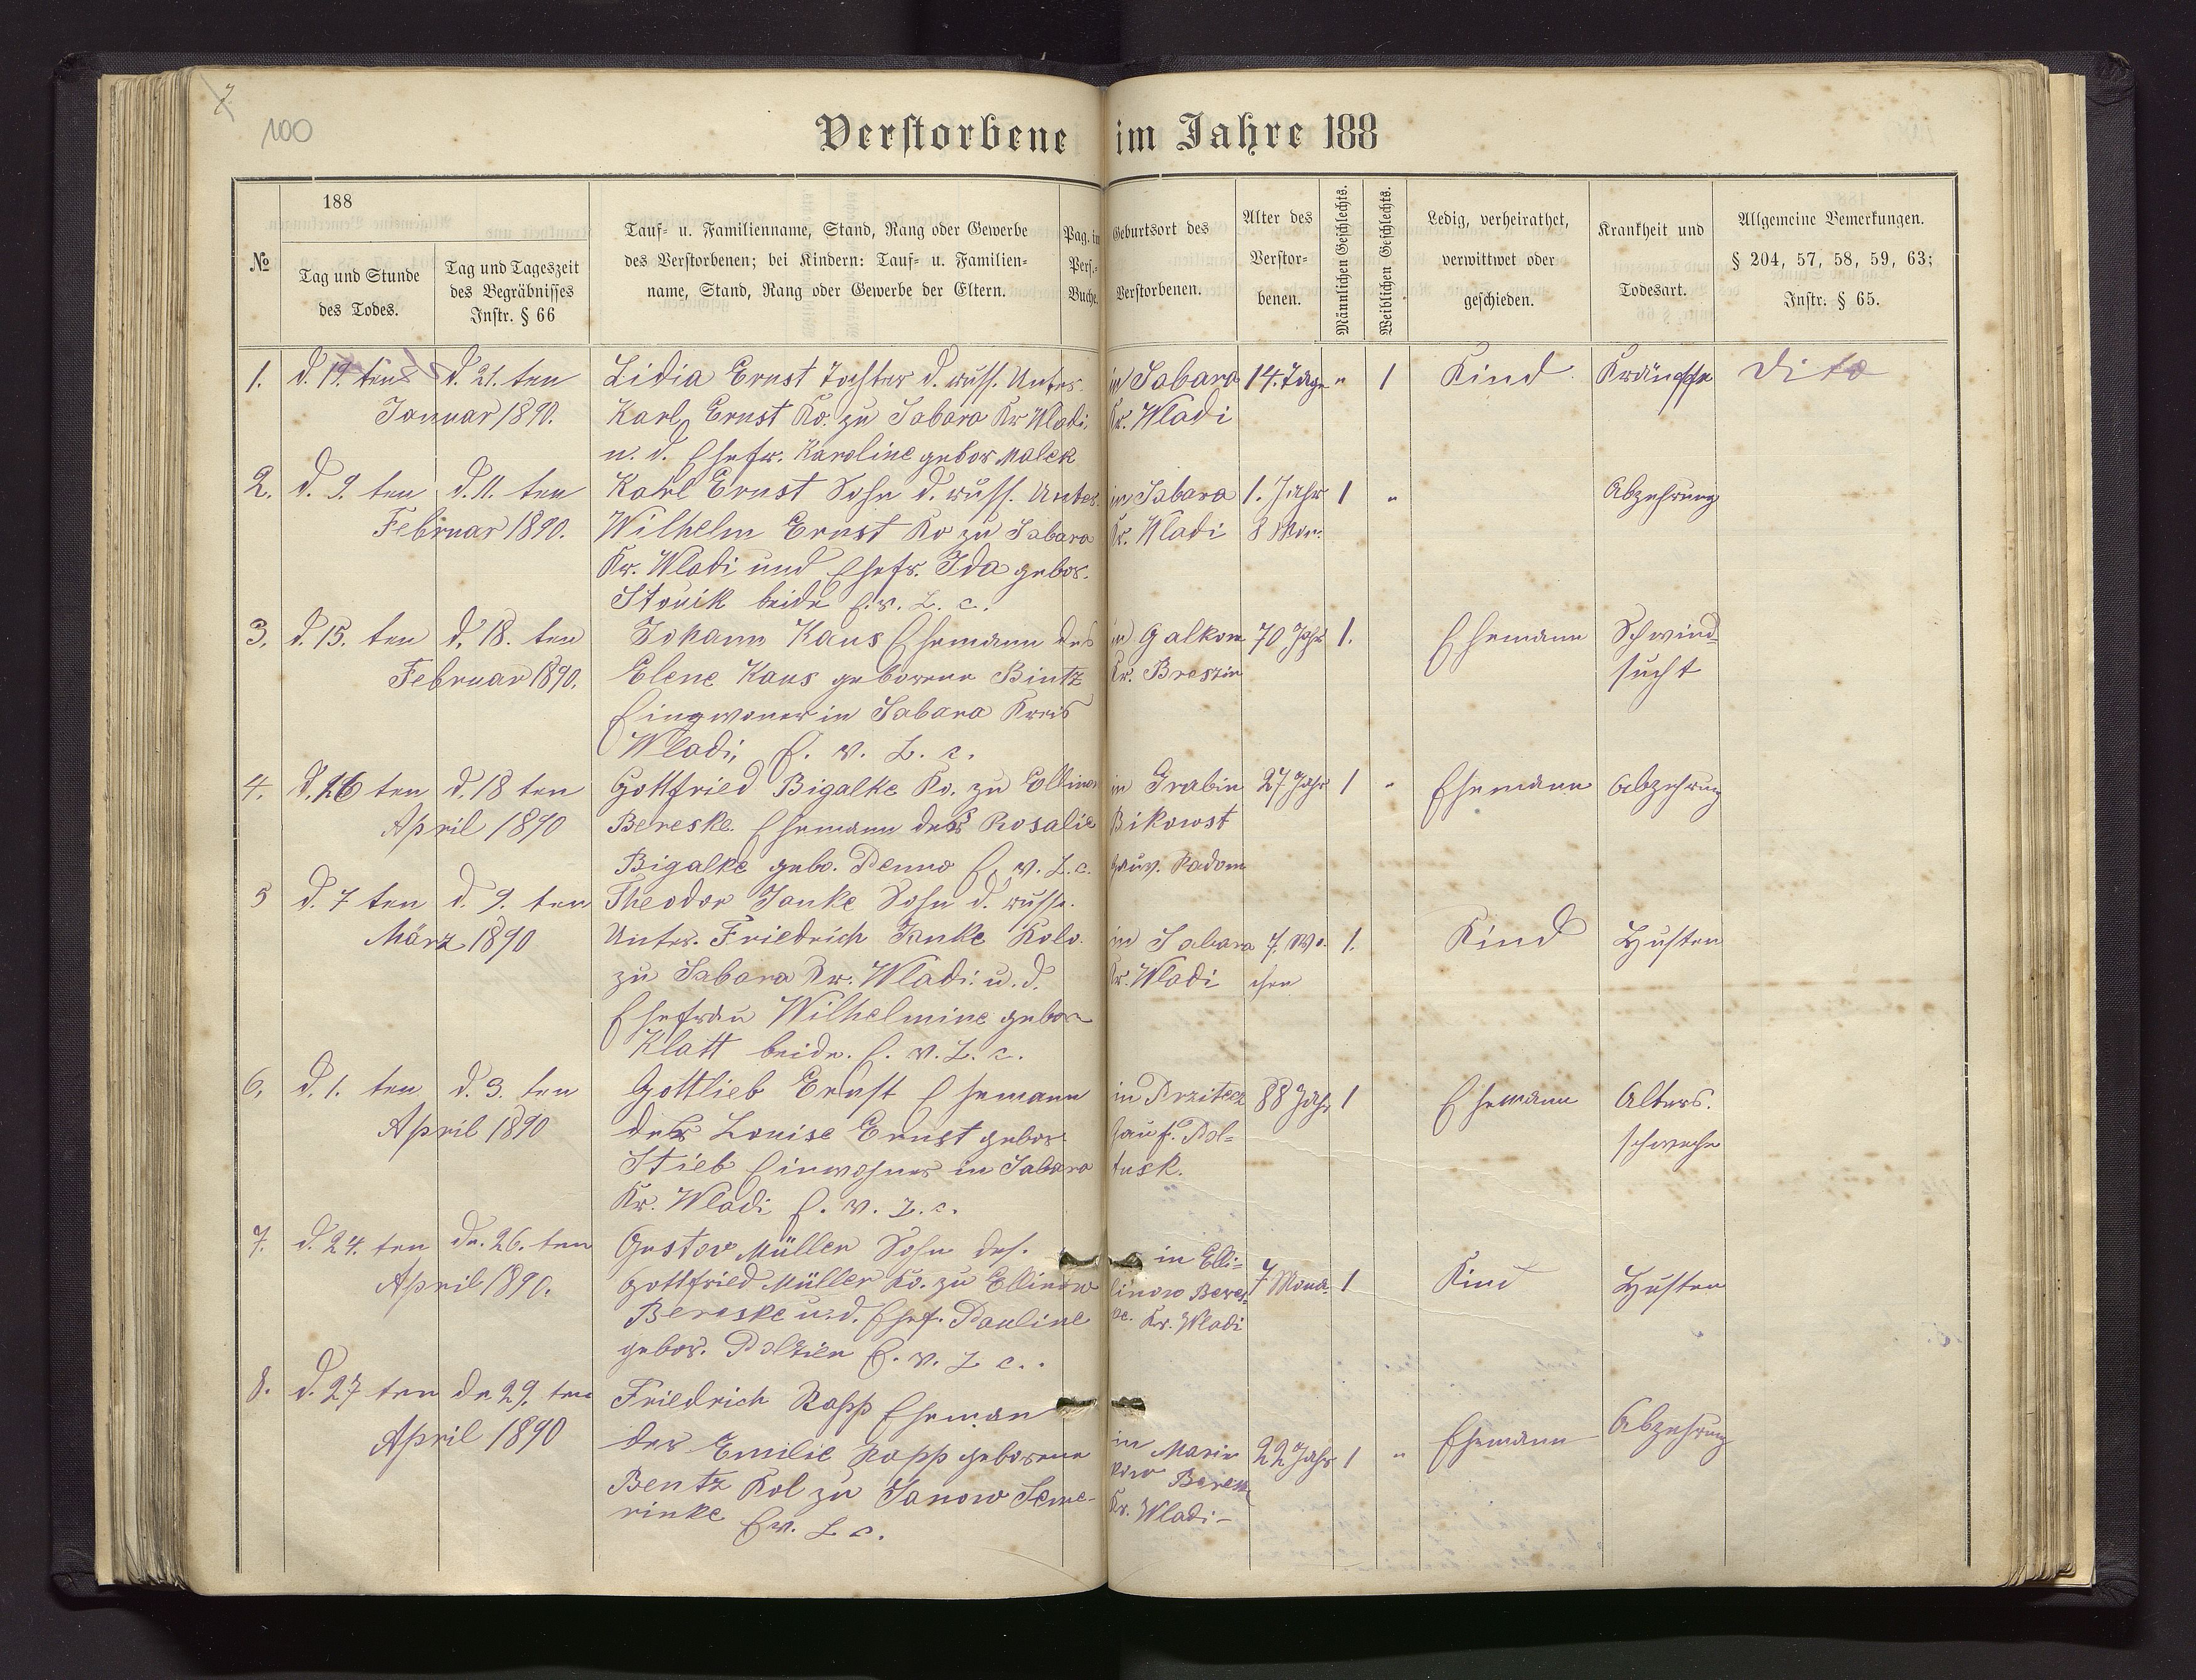 100
Verstorbene im Jahre 188
№
188
Tag und Stunde
des Todes.
Tag und Tageszeit
des Begräbnisses
Instr. § 66
Tauf- u. Familienname, Stand, Rang oder Gewerbe
des Verstorbenen; bei Kindern: Tauf- u. Familien-
name, Stand, Rang oder Gewerbe der Eltern.
Pag. in
Pers.-
Buche.
Geburtsort des
Verstorbenen.
Alter des
Verstor-
benen.
Männlichen Geschlechts.
Weiblichen Geschlechts.
Ledig, verheirathet,
verwittwet oder
geschieden.
Krankheit und
Todesart.
Allgemeine Bemerkungen.
§ 204, 57, 58, 59, 63;
Instr. § 65.
1. d. 19. ten d. 21. ten Lidia Ernst Tochter d. russ. Unter. in Sabara 14. Tage " 1 Kind Krämpfe Dito
Januar 1890. Karl Ernst Ko. zu Sabara Kr Wladi. Kr. Wladi
u. d. Ehefr. Karoline gebor Malek
2. d. 9. ten d. 11. ten Karl Ernst Sohn d. russ. Unter. in Sabara 1. Jahr 1 " Abzehrung
Februar 1890. Wilhelm Ernst Ko zu Sabara Kr. Wladi 8 Mon:
Kr. Wladi und Ehefr. Ida gebor.
beide E. v. L. c.
3. d. 15. ten d. 18. ten Johann Kaus Ehemann der in Galkow 70 Jahr 1. Ehemann Schwind-
Februar 1890. Elene Kaus geborene Bintz Kr. Breszin sucht
Eingwoner in Sabara Kreis
Wladi, E. v. L. c.
4. d. 16 ten d. 18 ten Gottfried Bigalke Ko. zu Ellinow in Grabin 27 Jahr 1 " Ehemann Abzehrung
April 1890 Bereske. Ehemann der Rosalie Bikowst
Bigalke gebo. Penno E. v. L. c. Gauv. Radom
5 d. 7 ten d. 9. ten Theodor Janke Sohn d. russ.
März 1890 Unter. Friedrich Janke Kolo. in Sabara 7. Wo- 1. Kind Husten
zu Sabara Kr. Wladi. u. d. Kr. Wladi chen
Ehefrau Wilhelmine gebor
Klatt beide. E. v. L. c.
6. d. 1. ten d. 3. ten Gottlieb Ernst Ehemann in Przitecz 88 Jahr 1 Ehemann Alters.
April 1890 der Louise Ernst gebor. Gauf. Pol- schweche
Stieb Einwohner in Sabara tusk.
Kr. Wladi E. v. L. c.
7. d. 24. ten de. 26. ten Gustav Müller Sohn des. in Elli-
April 1890. Gottfried Müller Ko. zu Ellinow linow Beres- 7 Mona. 1 Kind Husten
Bereske u. d. Ehef. Pauline ke. Kr. Wladi
gebor. Poltzien E. v. L c..
8. d. 27 ten de 29. ten Friedrich Rapp Eheman
April 1890 der Emilie Rapp geborene in Marin 22 Jahr 1 " Ehemann Abzehrung
Bentz Kol zu Janow Seme- kow Beresk
rinke Ev. L c. Kr. Wladi-